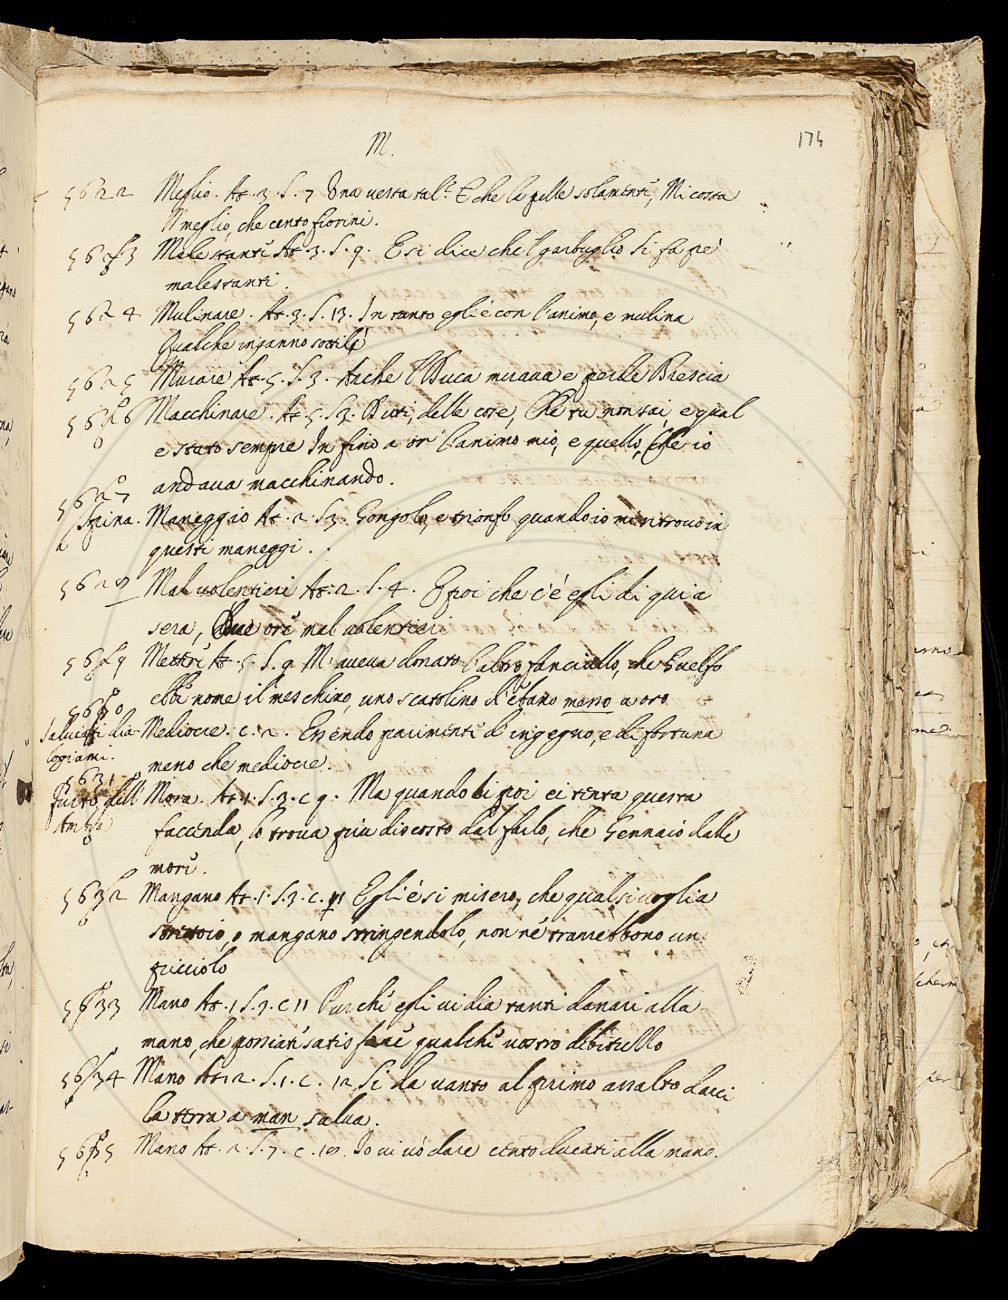 174
M.
5622 Meglio. At. 3. S. 7 Una vesta tal. E che la pelle solamente, Mi costa
Meglio, che cento fiorini.
5623 Male stanti At. 3. S. 9. E si dice che'l garbuglio si fa pe'
malestanti.
5624 Mulinare. At. 3. S. 13. In tanto egli è con l'animo, e mulina
Qualche inganno sottile
5625 Murare At. 5. S. 3. Anche l'Duca murava e perde Brescia
5626 Macchinare. At. 5. S. 3. delle cose, Che tu non sai, e qual
e stato sempre In fino a or l'animo mio, e quello, Che io
andava macchinando.
5627
Spina. Maneggio At. 2. S. 3. Gongolo, e trionfo quando io mi ritrovo in
questi maneggi.
5628 Mal volentieri At. 2. S. 4. E poi che c'è egli di qui a
sera, Due ore mal volentieri
5629 Mettere At. 5. S. 9 M'aveva donato l'altro fanciullo, che Guelfo
ebbe nome il meschino, uno scatolino d'ebano messo a oro
5630
Salviati dia- Mediocre. c. 2. Essendo parimente d'ingegno, e di fortuna
logi ami. meno che mediocre.
5631
Furto dell' Mora. At. 1. S. 3. c 9. Ma quando di poi ei tenta questa
Ambra faccenda, lo trova più discosto dal farlo, che Gennaio dalle
more.
5632 Mangano At. 1. S. 3. c. 11 Egli è si misero, che qualsivoglia
strettoio, o mangano stringendolo, non ne trarrebbono un
picciolo
5633 Mano At. 1 S. 3. c 11 Purchè egli vi dia tanti danari alla
mano, che possiate satisfare qualche vostro debituzzo
5634 Mano At. 2. S. 1. c. 12 Si da vanto al primo assalto darci
la terra a man salva.
5635 Mano At. 2. S. 7. c. 18. Io vi vo' dare cento ducati alla mano.